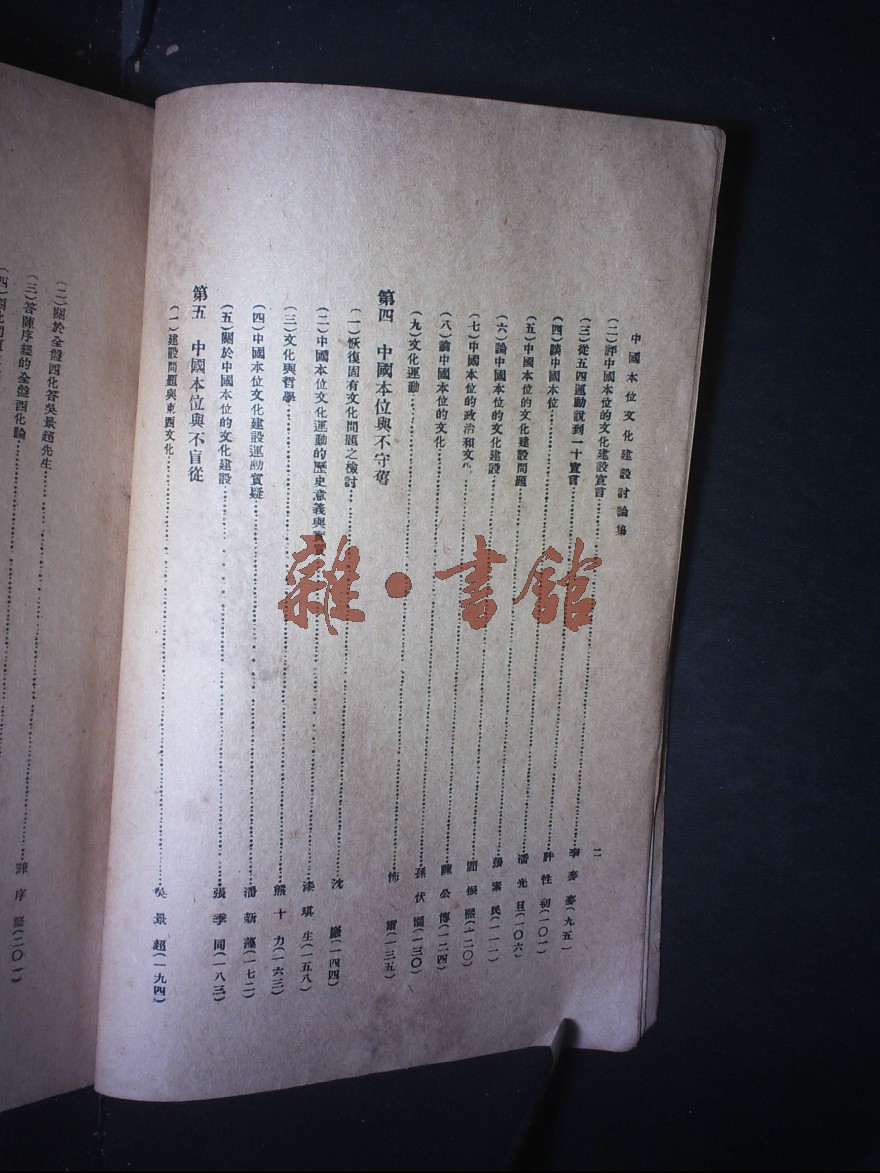 中國本位文化建設討論集
二
(二)評中國本位的文化建設宣言……李麥麥(九五)
(三)從五四運動說到一十宣言……許性初(一〇一)
(四)談中國本位……潘光旦(一〇六)
(五)中國本位的文化建設問題……張素民(一一一)
(六)論中國本位的文化建設……閻振熙(一二〇)
(七)中國本位的政治和文化……陳公博(一二四)
(八)論中國本位的文化……孫伏園(一三〇)
(九)文化運動……怖(一三五)
第四 中國本位與不守舊
(一)恢復固有文化問題之檢討……沈(一四四)
(二)中國本位文化運動的歷史意義與……漆琪生(一五八)
(三)文化與哲學……熊十力(一六三)
(四)中國本位文化建設運動質疑……潘新藻(一七二)
(五)關於中國本位的文化建設……張季同(一八三)
第五 中國本位與不盲從
(一)建設問題與東西文化……吳景超(一九四)
(二)關於全盤西化答吳景超先生……陳序經(二〇一)
(三)答陳序經的全盤西化論
雜·書館